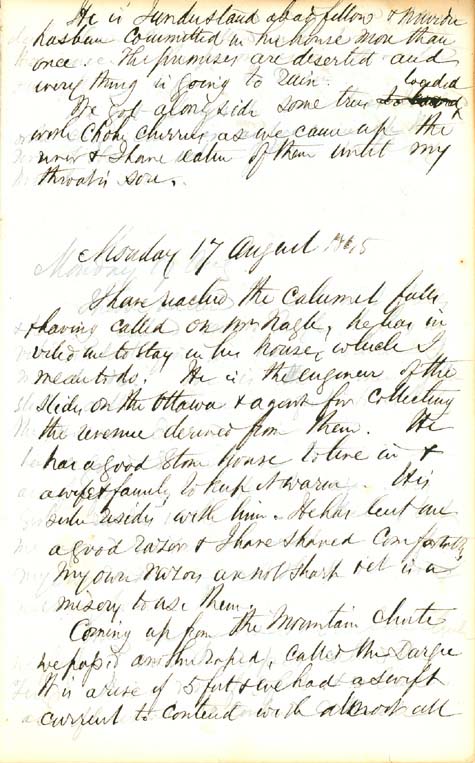 He is I understand a bad fellow & murder
has been committed in his house more than
once. The premises are deserted and
every thing is going to ruin.
We got alongside some trees loaded
with choke cherries as we came up the
river & I have eaten of them until my
throat is sore.
Monday 17 August
I have reached the Calumet falls
& having called on Mr Nagle, he has in
vited me to stay in his house, which I
mean to do. He is the engineer of the
slides on the Ottawa & agent for collecting
the revenue derived from them. He
has a good stone house to live in &
a wife & family to keep it warm. His
sister resides with him. He has lent me
a good razor & I have shaved comfortably
My own razors are not sharp & it is a
misery to use them.
Coming up from the Mountain chute
we passed another rapid, called the Dargie
It is a rise of 5 feet & we had a swift
current to contend with almost all